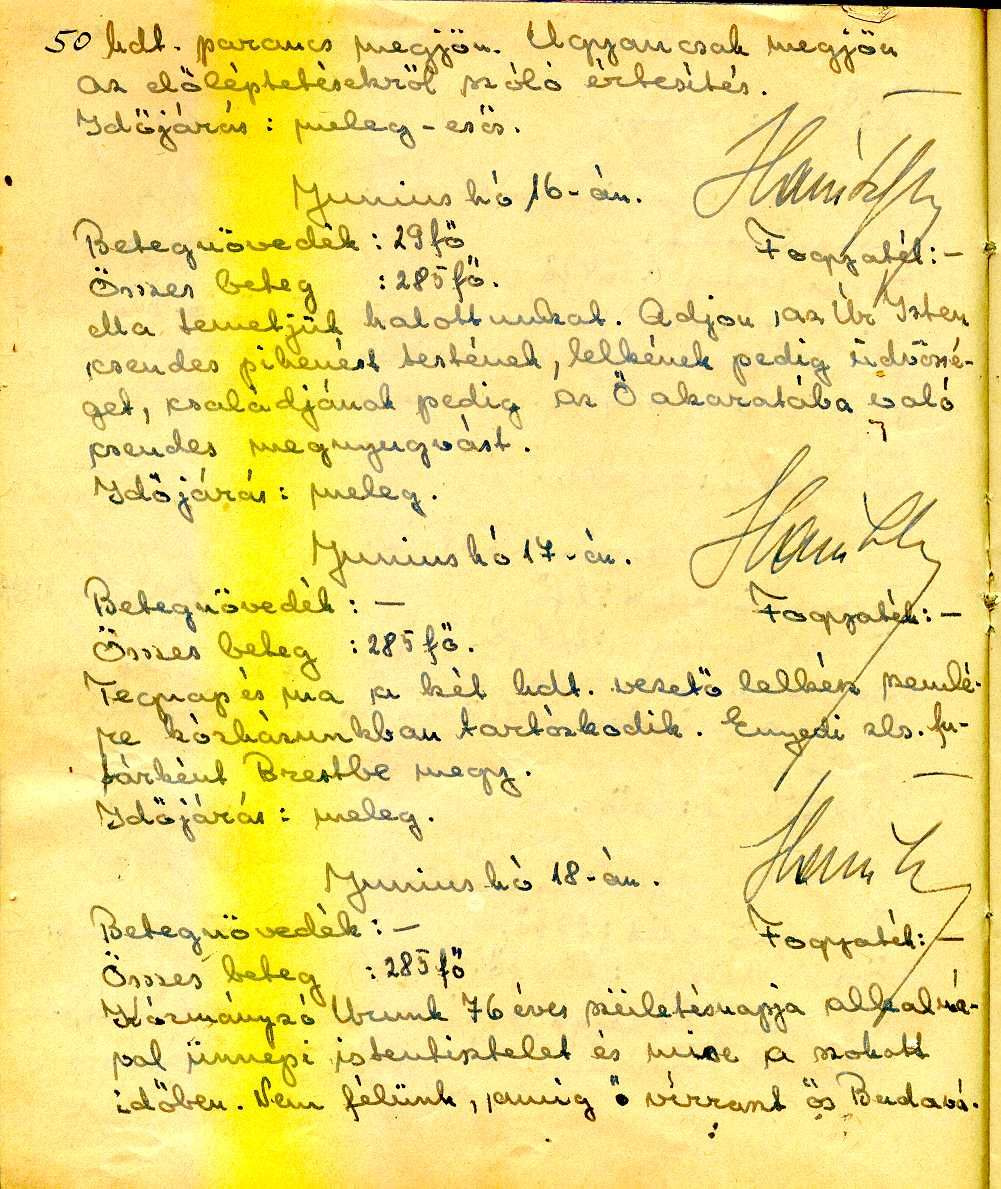 50 hdt. parancs megjön. Ugyancsak megjön
az előléptetésekről szóló értesítés.
Időjárás: meleg-esős.
Junius hó 16-án.
Betegnövedék: 29 fő Fogyaték: —
Összes beteg : 285 fő.
Ma temetjük halottunkat. Adjon az Úr Isten
csendes pihenést testének, lelkének pedig üdvössé-
get, családjának pedig az Ő akaratába való
csendes megnyugvást.
Időjárás: meleg.
Junius hó 17-én.
Betegnövedék: — Fogyaték: —
Összes beteg : 285 fő.
Tegnap és ma a két hdt. vezető lelkész szemlé-
re kórházunkban tartózkodik. Enyedi zls. fu-
tárként Brestbe megy.
Időjárás: meleg.
Junius hó 18-án.
Betegnövedék: — Fogyaték: —
Összes beteg : 285 fő
Kórmányzó Urunk 76 éves születésnapja alkalmá-
val ünnepi istentisztelet és mise a szokott
időben. Nem félünk, amíg ő virraszt ős Budavá-